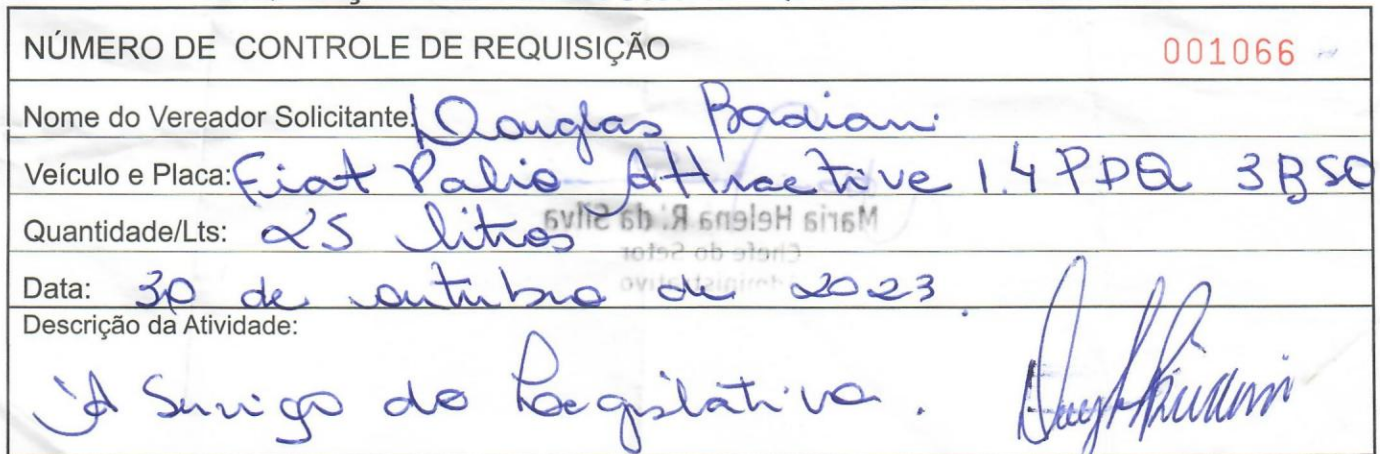 NÚMERO DE CONTROLE DE REQUISIÇÃO 001066
Nome do Vereador Solicitante: Douglas Badiani
Veículo e Placa: Fiat Palio Attractive 1.4 PPQ
Quantidade/Lts: 25 litros
Maria Helena R. da Silva
Chefe do Setor
Administrativo
Data: 30 de outubro de 2023
Descrição da Atividade:
À Serviço do Legislativo.